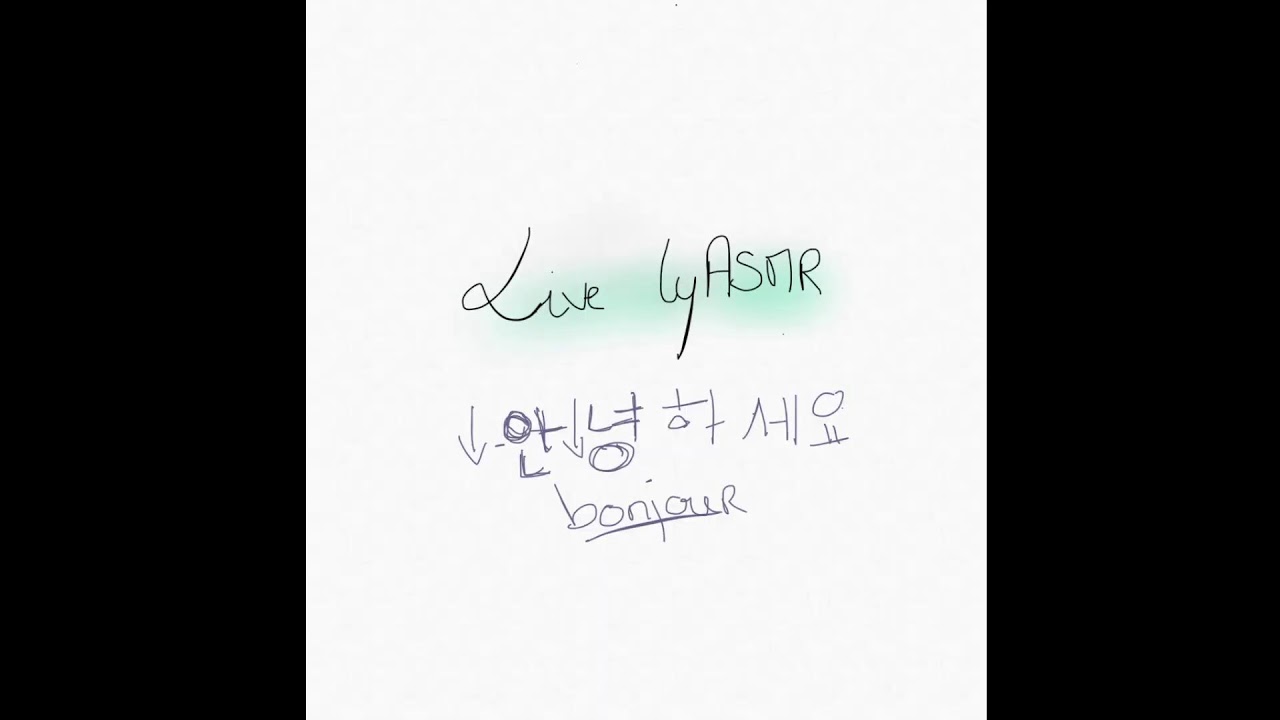 Live lyASMR
안녕하세요
bonjour